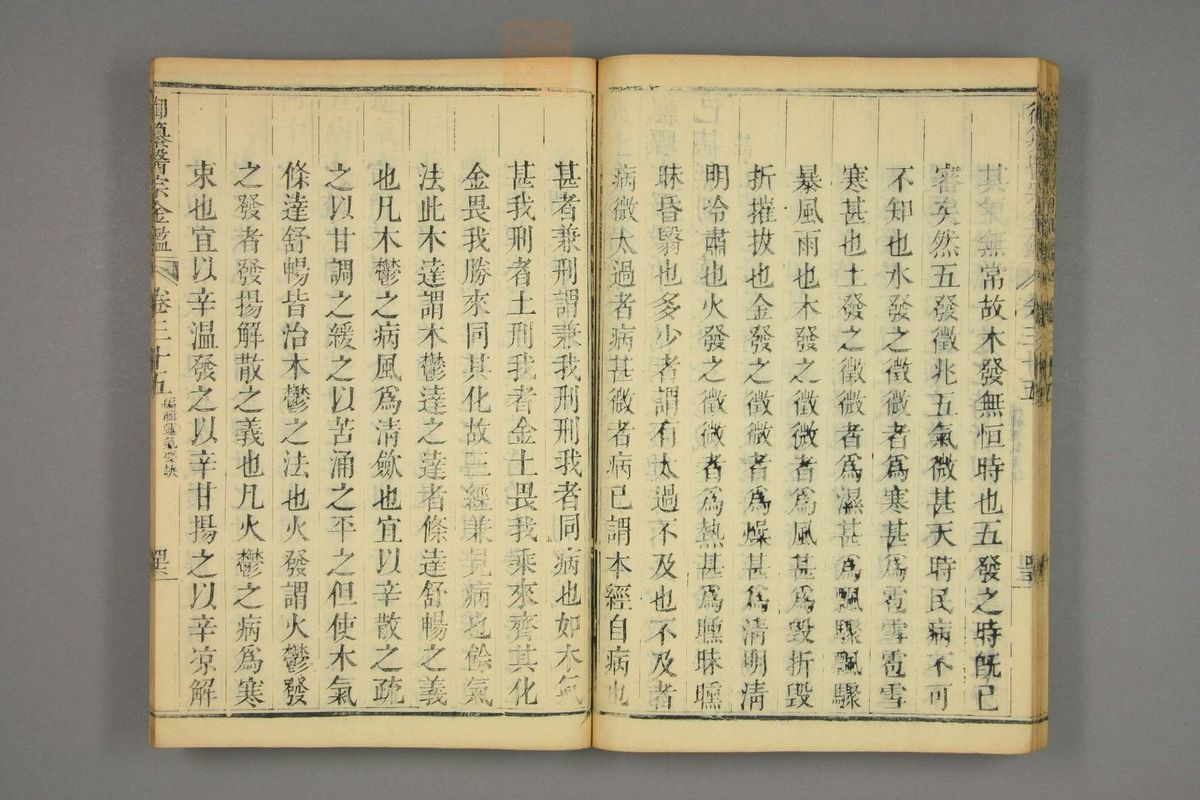 其氣無常故木發無恒時也五發之時既已
審矣然五發徵兆五氣微甚天時民病不可
不知也水發之徵微者為寒甚為雹雪雹雪
寒甚也土發之徵微者為濕甚為飄驟飄驟
暴風雨也木發之徵微者為風甚為毀折毀
折摧拔也金發之徵微者為燥甚為清明清
明冷肅也火發之徵微者為熱甚為曛昧曛
昧昏翳也多少者謂有太過不及也不及者
病微太過者病甚微者病已謂本經自病也
甚者兼刑謂兼我刑刑我者同病也如木氣
甚我刑者土刑我者金土畏我乘來齊其化
金畏我勝來同其化故三經兼見病也餘氣
法此木達謂木鬱達之達者條達舒暢之義
也凡木鬱之病風為清斂也宜以辛散之疏
之以甘調之緩之以苦涌之平之但使木氣
條達舒暢皆治木鬱之法也火發謂火鬱發
之發者發揚解散之義也凡火鬱之病為寒
束也宜以辛溫發之以辛甘揚之以辛凉解
御纂醫宗金鑑
卷三十五
編輯運氣要訣